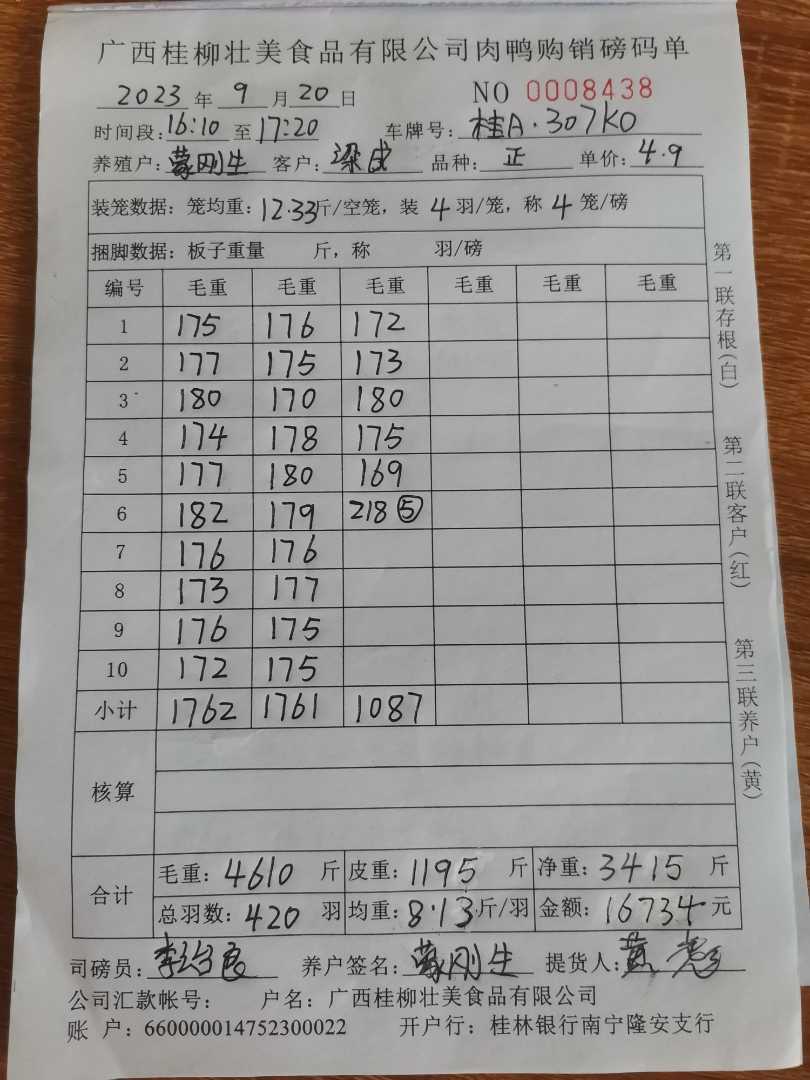 广西桂柳壮美食品有限公司肉鸭购销磅码单
2023年 9月20日 NO 0008438
时间段:16:10至17:20 车牌号:桂A·307K0
养殖户:蒙刚生 客户:梁成 品种:正 单价:4.9
装笼数据:笼均重:12.33斤/空笼,装4羽/笼,称4笼/磅
捆脚数据:板子重量 斤,称 羽/磅
编号 毛重 毛重 毛重 毛重 毛重 毛重
1 175 176 172
2 177 175 173
3 180 170 180
4 174 178 175
5 177 180 169
6 182 179 218⑤
7 176 176
8 173 177
9 176 175
10 172 175
小计 1762 1761 1087
核算
合计
毛重:4610斤 皮重:1195斤 净重:3415斤
总羽数:420羽 均重:8.13斤/羽 金额:16734元
司磅员: 养户签名:蒙刚生 提货人:
公司汇款帐号: 户名:广西桂柳壮美食品有限公司
账 户:660000014752300022 开户行:桂林银行南宁隆安支行
第一联存根(白)
第二联客户(红)
第三联养户(黄)